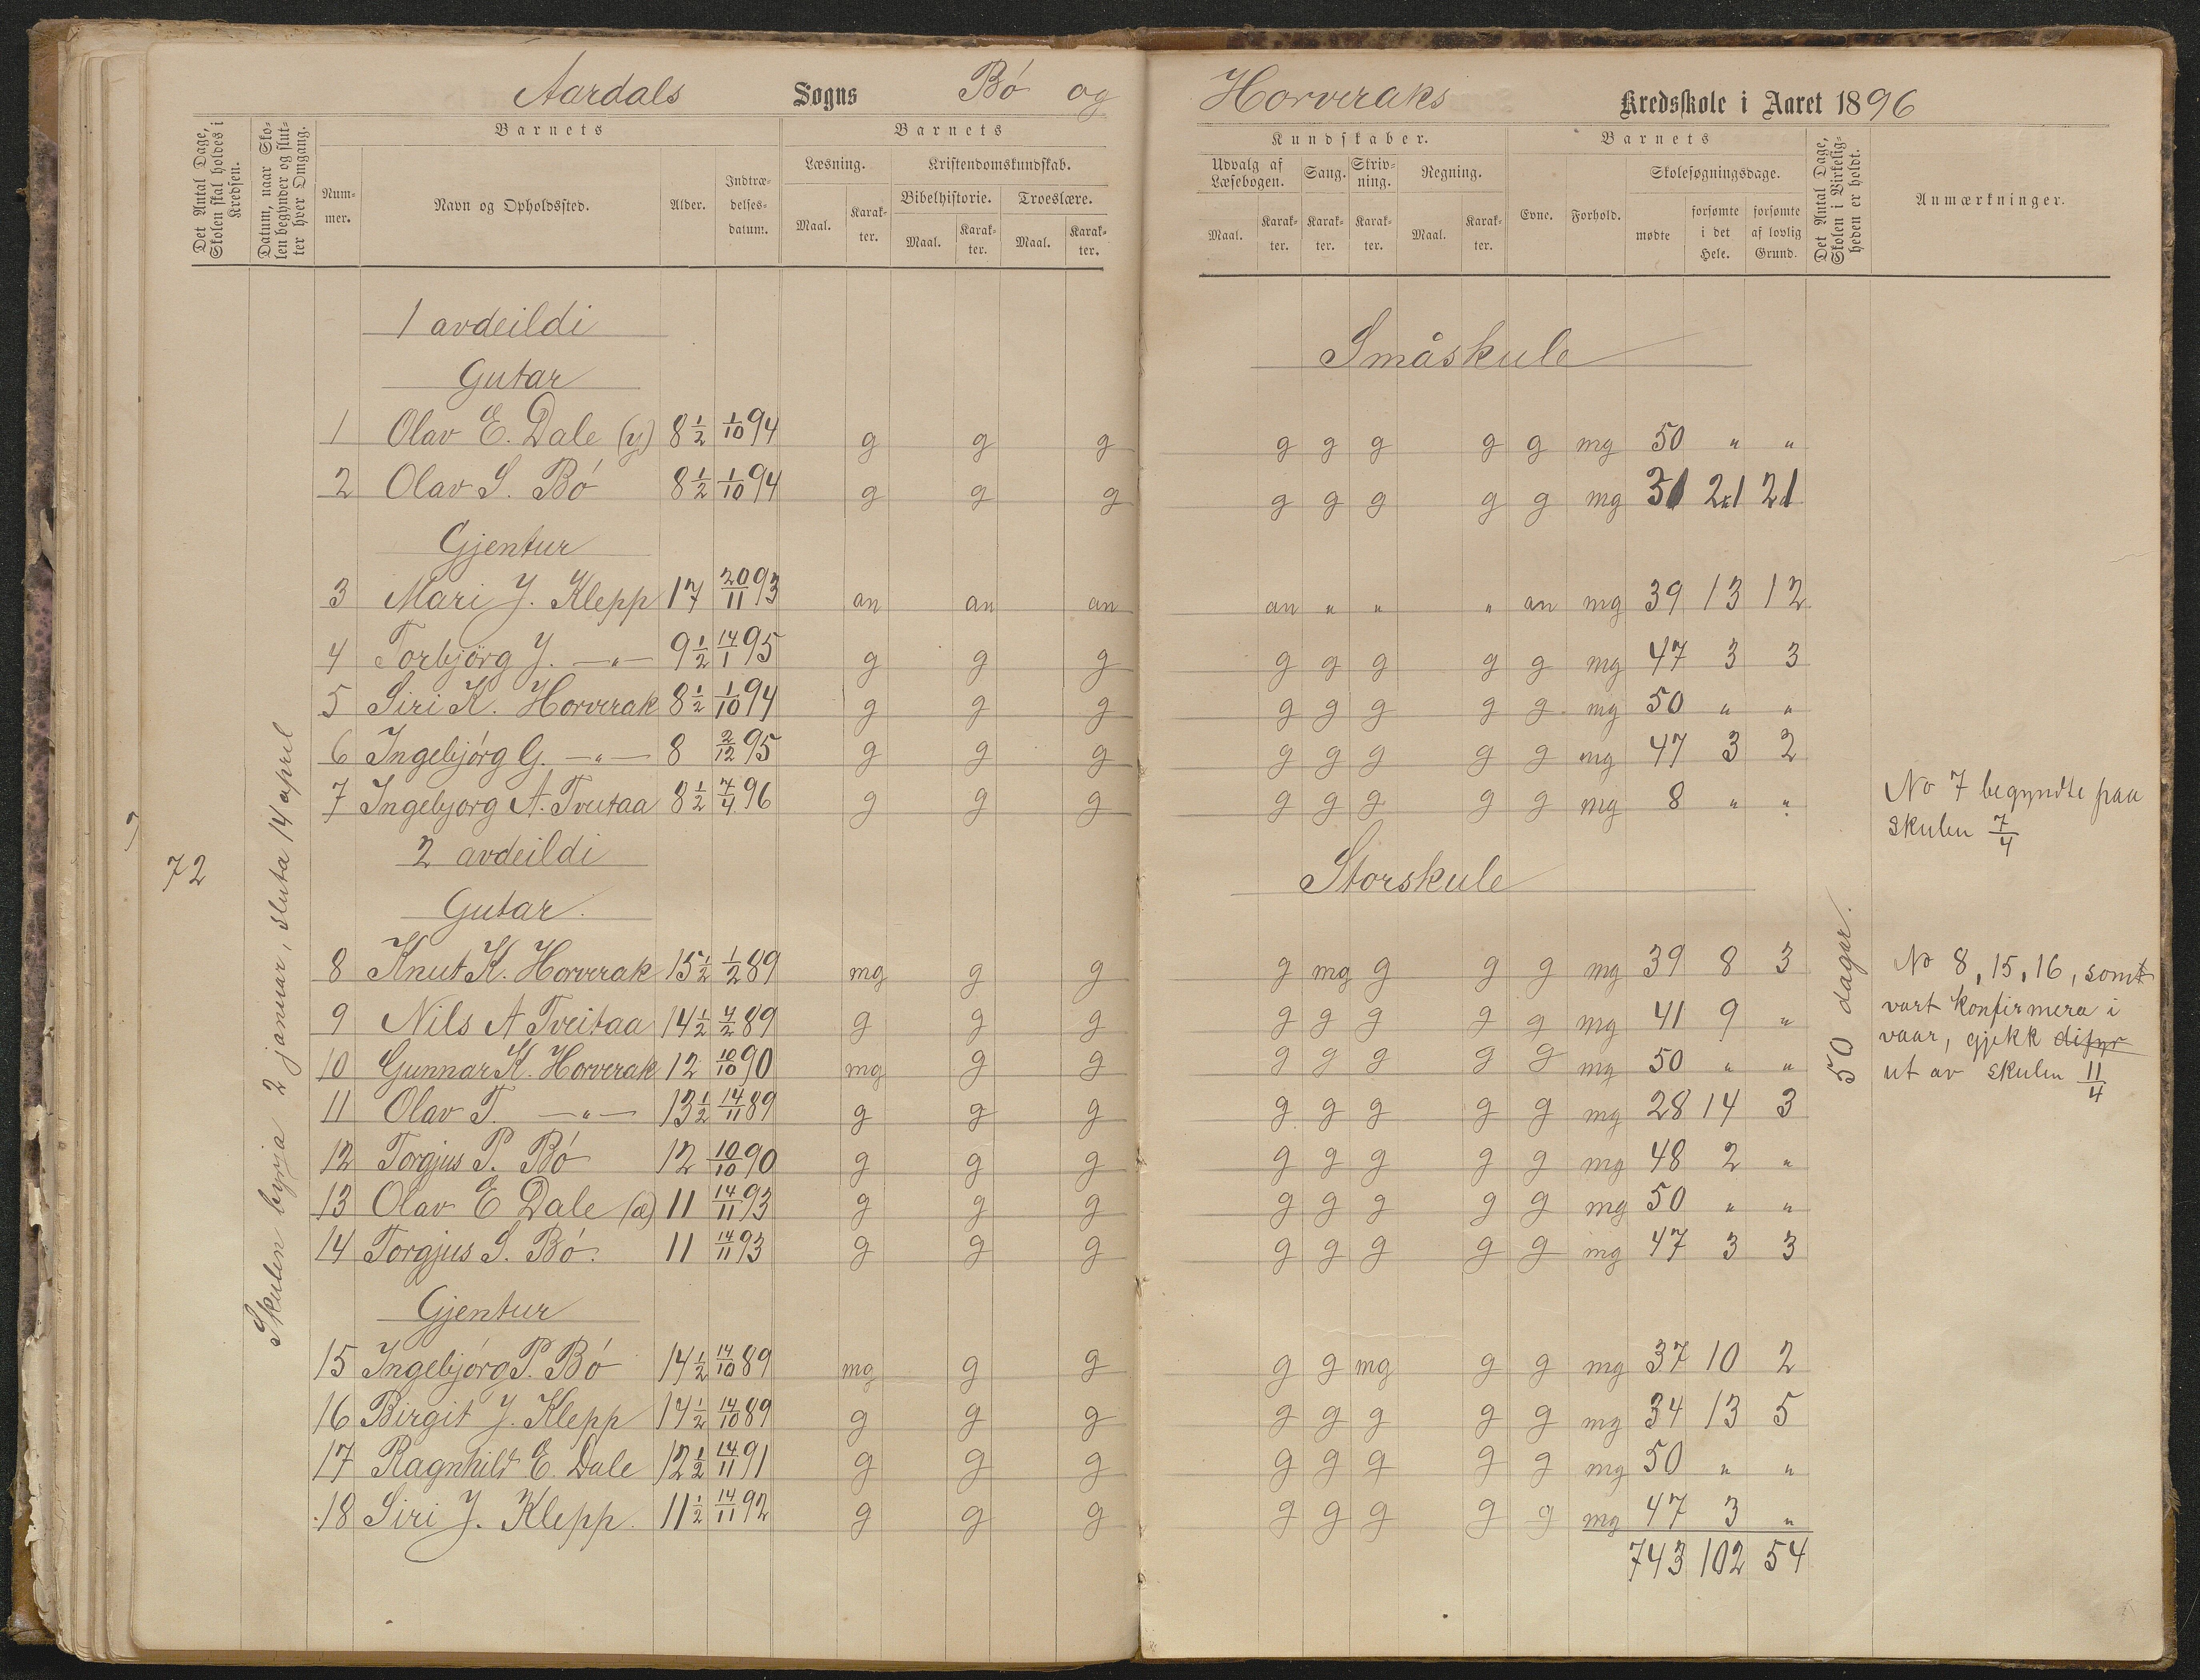 Aardals Sogns Bó og
Horveraks Kredsskole i Aaret 1896
Det Antal Dage, Skolen skal holdes i Kredsen.
Datum, naar Skolen begynder og slutter hver Omgang.
Barnets
Nummer.
Navn og Opholdssted.
Alder.
Indtrædelsesdatum.
Barnets
Læsning.
Kristendomskundskab.
Bibelhistorie.
Troeslære.
Maal. Karakter. Maal. Karakter. Maal. Karakter.
Kundskaber.
Udvalg af Læsebogen.
Sang.
Skrivning.
Regning.
Maal. Karakter. Karakter. Karakter. Maal. Karakter.
Barnets
Evne. Forhold.
Skolesøgningsdage.
mødte
forsømte i det Hele.
forsømte af lovlig Grund.
Det Antal Dage, Skolen i Virkeligheden er holdt.
Anmærkninger.
72
Skulen byrja 2 januar, sluta 14 april
50 dagar.
1 avdeildi
Småskule
Gutar
1 Olav E. Dale (y) 8 1/2 1/10 94 g g g g g g g g mg 50 " "
2 Olav S. Bó 8 1/2 1/10 94 g g g g g g g g mg 31 21 21
Gjentur
3 Mari J. Klepp 17 20/11 93 an an an an " " " an mg 39 13 12
4 Torbjörg J. —"— 9 1/2 14/1 95 g g g g g g g g mg 47 3 3
5 Siri K. Horverak 8 1/2 1/10 94 g g g g g g g g mg 50 " "
6 Ingebjórg G. —"— 8 2/12 95 g g g g g g g g mg 47 3 2
7 Ingebjorg A. Tveitaa 8 1/2 7/4 96 g g g g g g g g mg 8 " "
No 7 begyndte paa
skulen 7/4
2 avdeildi
Storskule
Gutar.
8 Knut K. Horverak 15 1/2 1/2 89 mg g g g mg g g g mg 39 8 3
9 Nils A Tveitaa 14 1/2 4/2 89 g g g g g g g g mg 41 9 "
10 Gunnar K. Horverak 12 10/10 90 mg g g g g g g g mg 50 " "
11 Olav T. —"— 13 1/2 14/11 89 g g g g g g g g mg 28 14 3
12 Torgjus P. Bó 12 10/10 90 g g g g g g g g mg 48 2 "
13 Olav E Dale (æ) 11 14/11 93 g g g g g g g g mg 50 " "
14 Torgjus S. Bó. 11 14/11 93 g g g g g g g g mg 47 3 3
No 8, 15, 16, som
vart konfirmera i
vaar, gjekk difyr
ut av skulen 11/4
Gjentur
15 Ingebjórg P. Bó 14 1/2 14/10 89 mg g g g g mg g g mg 37 10 2
16 Birgit J. Klepp 14 1/2 14/10 89 g g g g g g g g mg 34 13 5
17 Ragnhild E. Dale 12 1/2 14/11 91 g g g g g g g g mg 50 " "
18 Siri J. Klepp. 11 1/2 14/11 92 g g g g g g g g mg 47 3 "
743 102 54